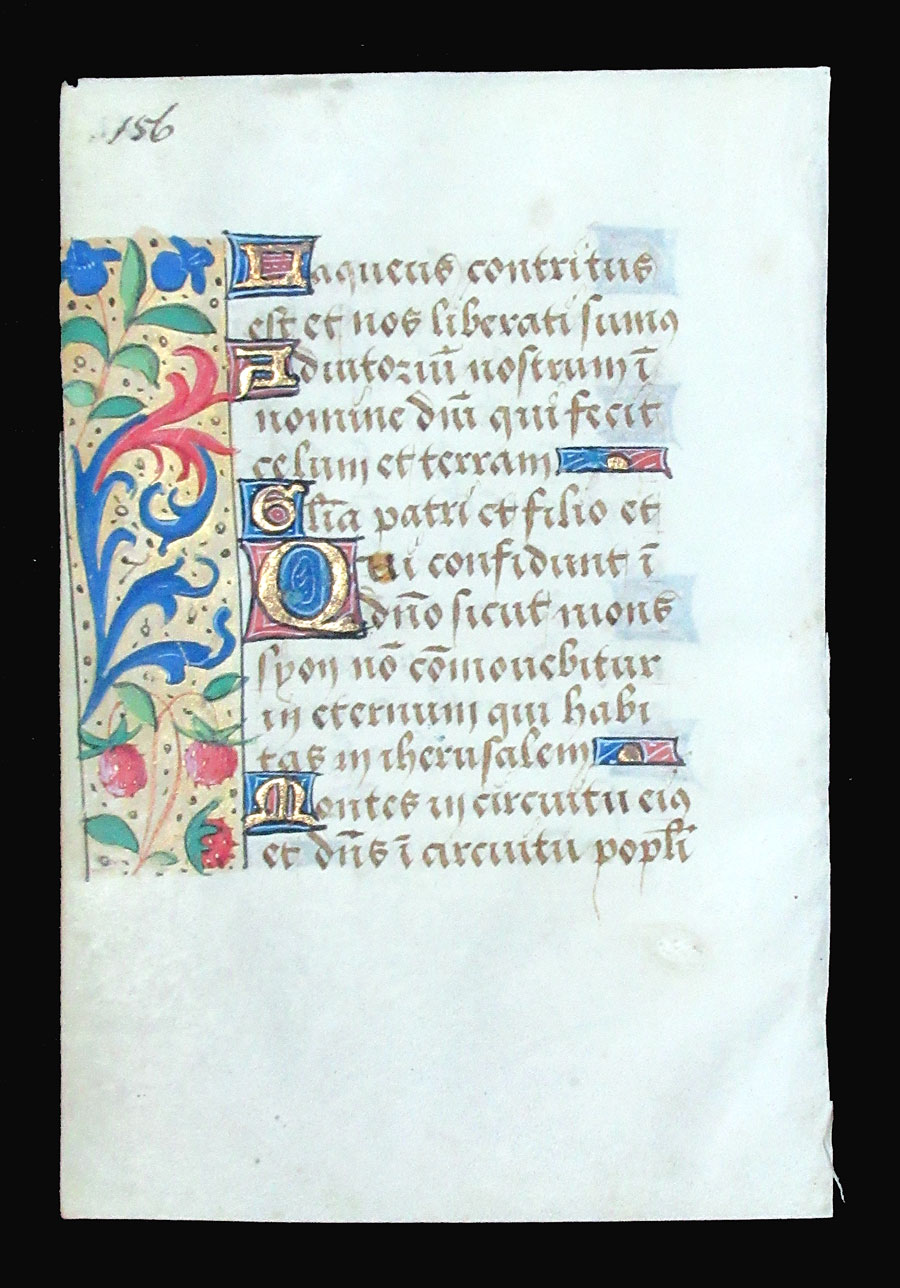 156
Laqueus contritus
est et nos liberati sumus
Adiutoriũ nostrum ĩ
nomine dñi qui fecit
celum et terram
Glĩa patri et filio et
Qui confidunt ĩ
dño sicut mons
syon nõ cõmouebitur
in eternum qui habi
tas in iherusalem
Montes in circuitu eiꝯ
et dñs ĩ circuitu popli